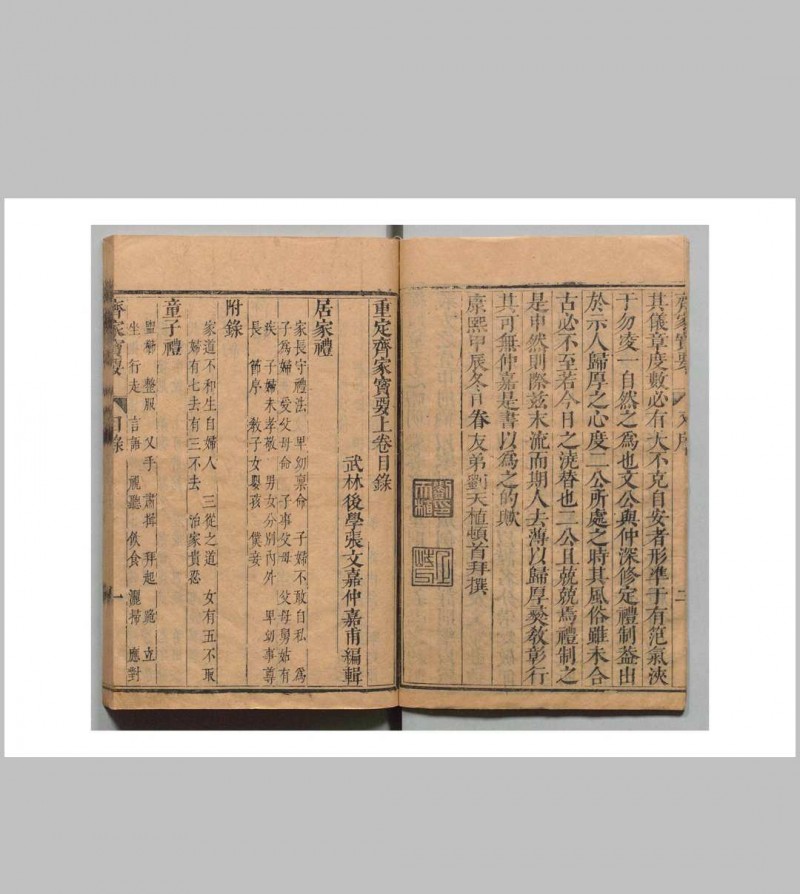 其儀章度數必有大不克自安者形準于有范氣浹
于勿凌一自然之為也文公與仲深修定禮制葢出
於示人歸厚之心度二公所處之時其風俗雖未合
古必不至若今日之澆替也二公且兢兢焉禮制之
是申然則際茲末流而期人去薄以歸厚敎彰行
其可無仲嘉是書以為之的歟
康熙甲辰冬日眷友弟劉天植頓首拜撰
重定齊家寶要上卷目錄
武林後學張文嘉仲嘉甫編輯
居家禮
家長守禮法 卑幼稟命 子婦不敢自私 為
子為婦 愛父母命 子事父母 父母舅姑有
疾 子婦未孝敬 男女分別內外 卑幼事尊
長 節序 敎子女嬰孩 僕妾
附錄
家道不和生自婦人 三從之道 女有五不取
婦有七去有三不去 治家貴忍
童子禮
盥櫛 整服 叉手 肅揖 拜起 跪 立
坐 行走 言語 視聽 飲食 灑掃 應對
齊家寶要 目錄 一